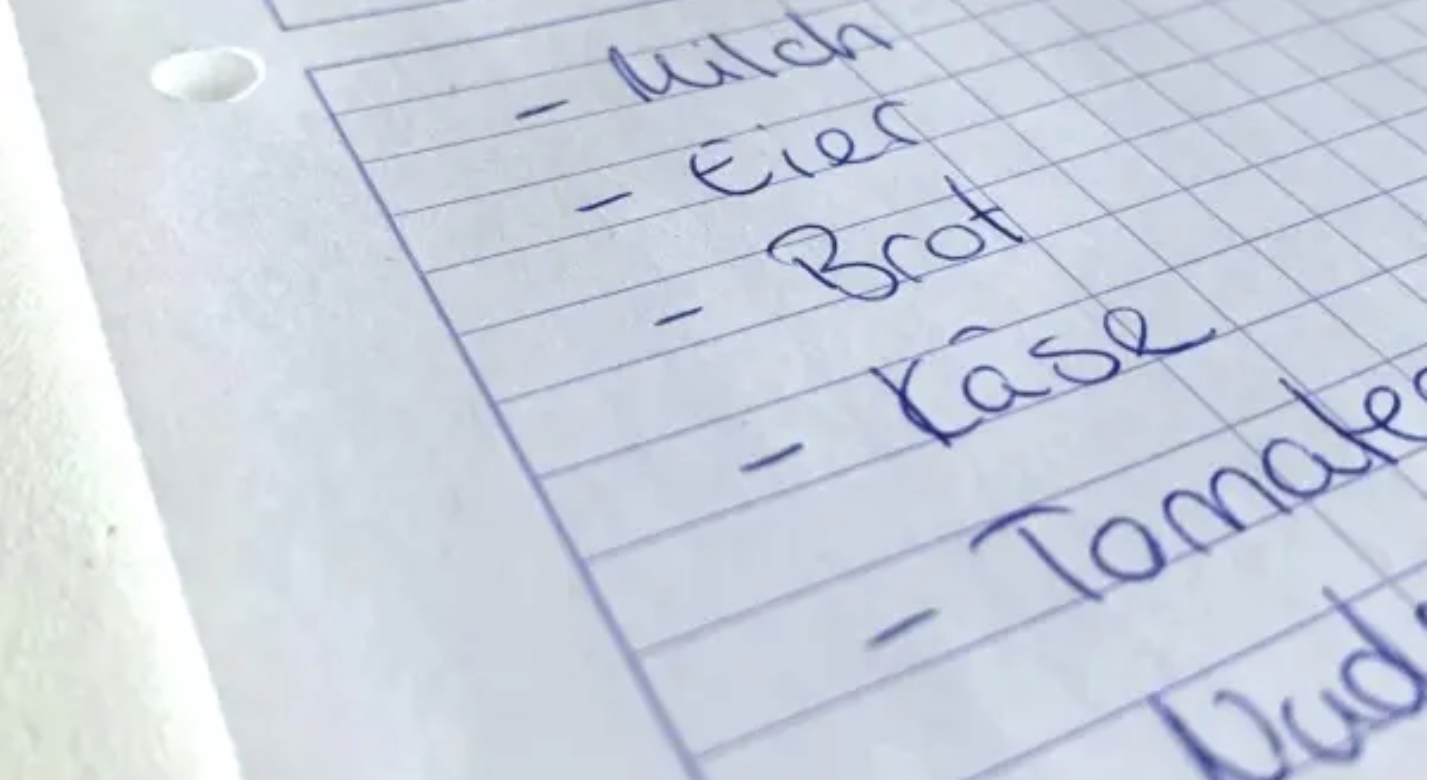 - Milch
- Eier
- Brot
- Käse
- Tomate
Nud